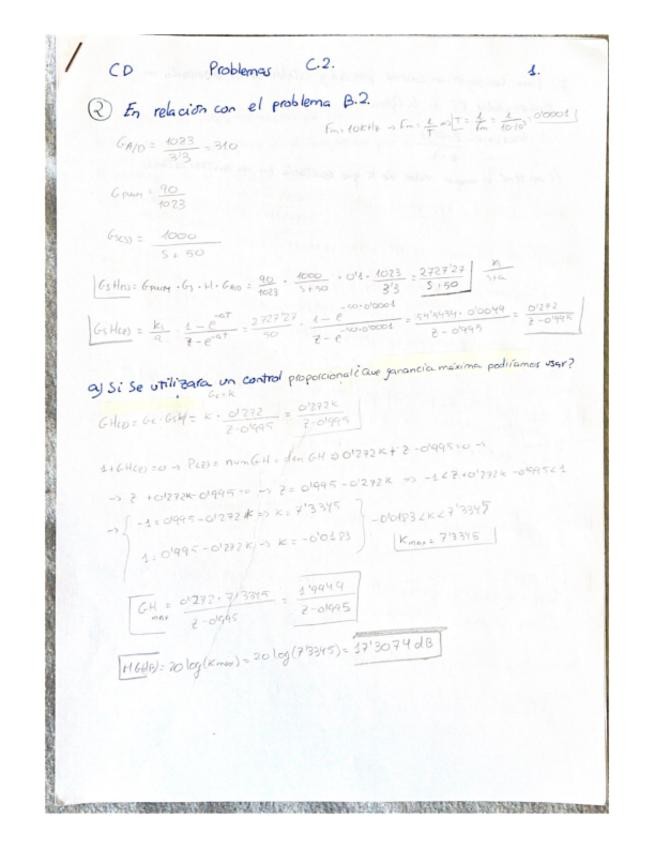 CD Problemas C.2. 1.
② En relación con el problema B.2.
Fm = 10KHz → Fm = 1/T → T = 1/Fm = 1/10·10³ = 0'0001
G A/D = 1023/3'3 = 310
G PWM = 90/1023
Gs(s) = 1000/S+50
GsH(s) = GPWM · Gs · H · GAD = 90/1023 · 1000/S+50 · 0'1 · 1023/3'3 = 2727'27/S+50
GsH(z) = K/a · 1-e^-aT/z-e^-aT = 2727'27/50 · 1-e^-50·0'0001/z-e^-50·0'0001 = 54'5454·0'0049/z-0'995 = 0'272/z-0'995
a) Si Se utilizara un control proporcional ¿Que ganancia máxima podríamos usar?
Gc=K
GH(z) = Gc · GsH = K · 0'272/z-0'995 = 0'272K/z-0'995
1+GH(z)=0 → P(z) = numGH + denGH ⇒ 0'272K + z - 0'995 = 0 →
→ z + 0'272K - 0'995 = 0 → z = 0'995 - 0'272K ⇒ -1 < z + 0'272K - 0'995 < 1
→ -1 = 0'995 - 0'272K ⇒ K = 7'3345
1 = 0'995 - 0'272K → K = -0'0183
-0'0183 < K < 7'3345
Kmax = 7'3345
GH max = 0'272 · 7'3345/z-0'995 = 1'9949/z-0'995
MG(dB) = 20 log(Kmax) = 20 log(7'3345) = 17'3074 dB